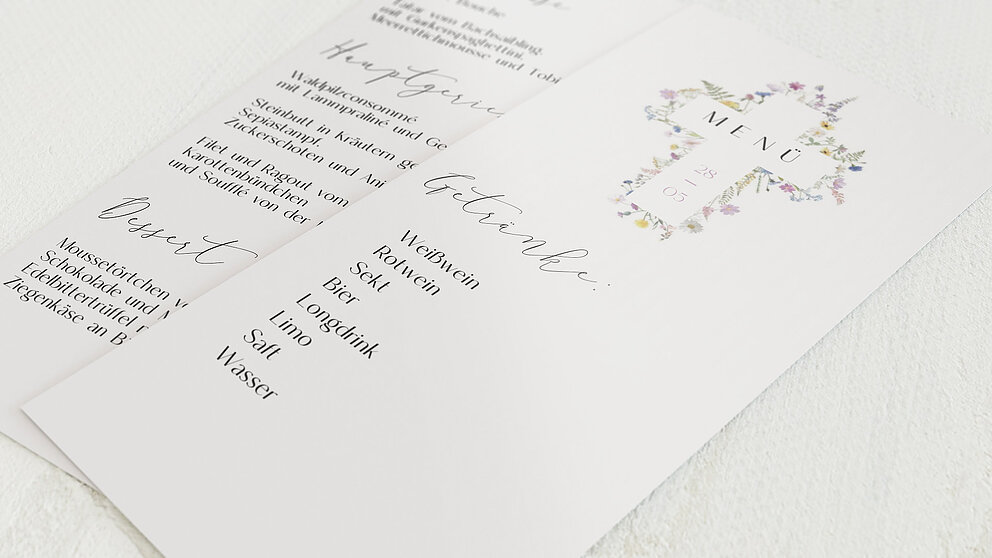 Bouche
Tatar vom Bachsaibling,
mit Gurkenspaghettini,
Meerrettichmousse und Tobi
Hauptgeric
Waldpilzconsommé
mit Lammpraliné und Ge
Steinbutt in Kräutern ge
Sepiastampf,
Zuckerschoten und Ani
Filet und Ragout vom
Karottenbündchen
und Soufflé von der
Dessert
Moussetörtchen v
Schokolade und M
Edelbittertrüffel
Ziegenkäse an B
MENÜ
28
05
Getränke:
Weißwein
Rotwein
Sekt
Bier
Longdrink
Limo
Saft
Wasser